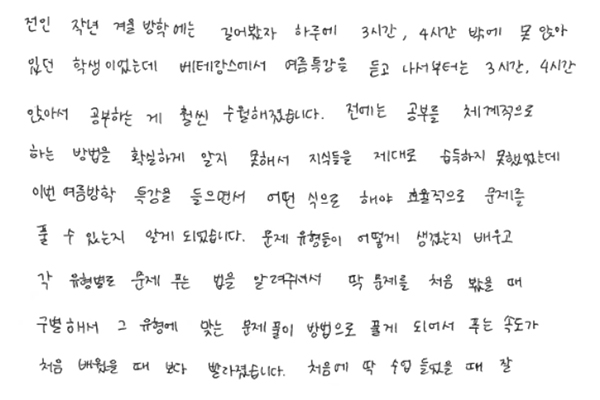 전인 작년 겨울 방학에는 길어봤자 하루에 3시간, 4시간 밖에 못 앉아
있던 학생이었는데 베테랑스에서 여름특강을 듣고 나서부터는 3시간, 4시간
앉아서 공부하는 게 훨씬 수월해졌습니다. 전에는 공부를 체계적으로
하는 방법을 확실하게 알지 못해서 지식들을 제대로 습득하지 못했었는데
이번 여름방학 특강을 들으면서 어떤 식으로 해야 효율적으로 문제를
풀 수 있는지 알게 되었습니다. 문제 유형들이 어떻게 생겼는지 배우고
각 유형별로 문제 푸는 법을 알려주셔서 딱 문제를 처음 봤을 때
구별해서 그 유형에 맞는 문제 풀이 방법으로 풀게 되어서 푸는 속도가
처음 배웠을 때 보다 빨라졌습니다. 처음에 딱 수업 들었을 때 잘